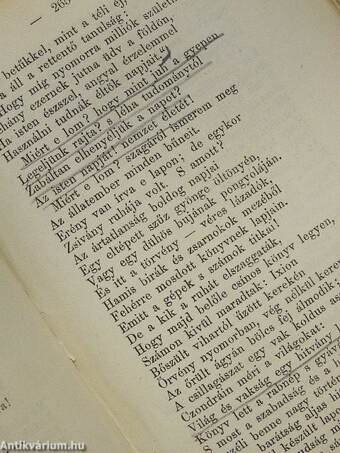 — 265 —
betűikkel, mint a téli éj,
a áll a rettentő tanulság:
Hogy míg nyomorra milliók születn
éhány ezernek jutna üdv a földön,
Ha isten ésszel, angyal érzelemmel
Használni tudnák éltök napjait."
Miért e lom? hogy mint juh a gyepen
Legeljünk rajta? s léha tudománytól
Zabáltan elhenyéljük a napot?
Az isten napját! nemzet életét!
Miért e lom? szagáról ismerem meg
Az állatember minden bűneit
Erény van irva e lapon; de egykor
Zsivány ruhája volt. S amott?
Az ártatlanság boldog napjai
Egy eltépett szűz gyönge öltönyén,
Vagy egy dühös bujának pongyoláján.
És itt a törvény — véres lázadók,
Hamis birák és zsarnokok mezéből
Fehérre mosdott könyvnek lapjain.
Emitt a gépek s számok titka!
De a kik a ruhát elszaggaták,
Hogy majd belőle csinos könyv legyen,
Számon kívül maradtak: Ixion
Bőszült vihartól űzött kerekén
Örvény nyomorban, vég nélkül kere
Az őrült ágyán bölcs fej álmodik;
A csillagászat egy vak koldus as
Condráin méri a világokat:
Világ és vakság egy hitvány l
Könyv lett a rabnép s gyáv
S most a szabadság és a
zéli benne nagy történ
barátság
készült lapo
a!
Antikvárium.hu